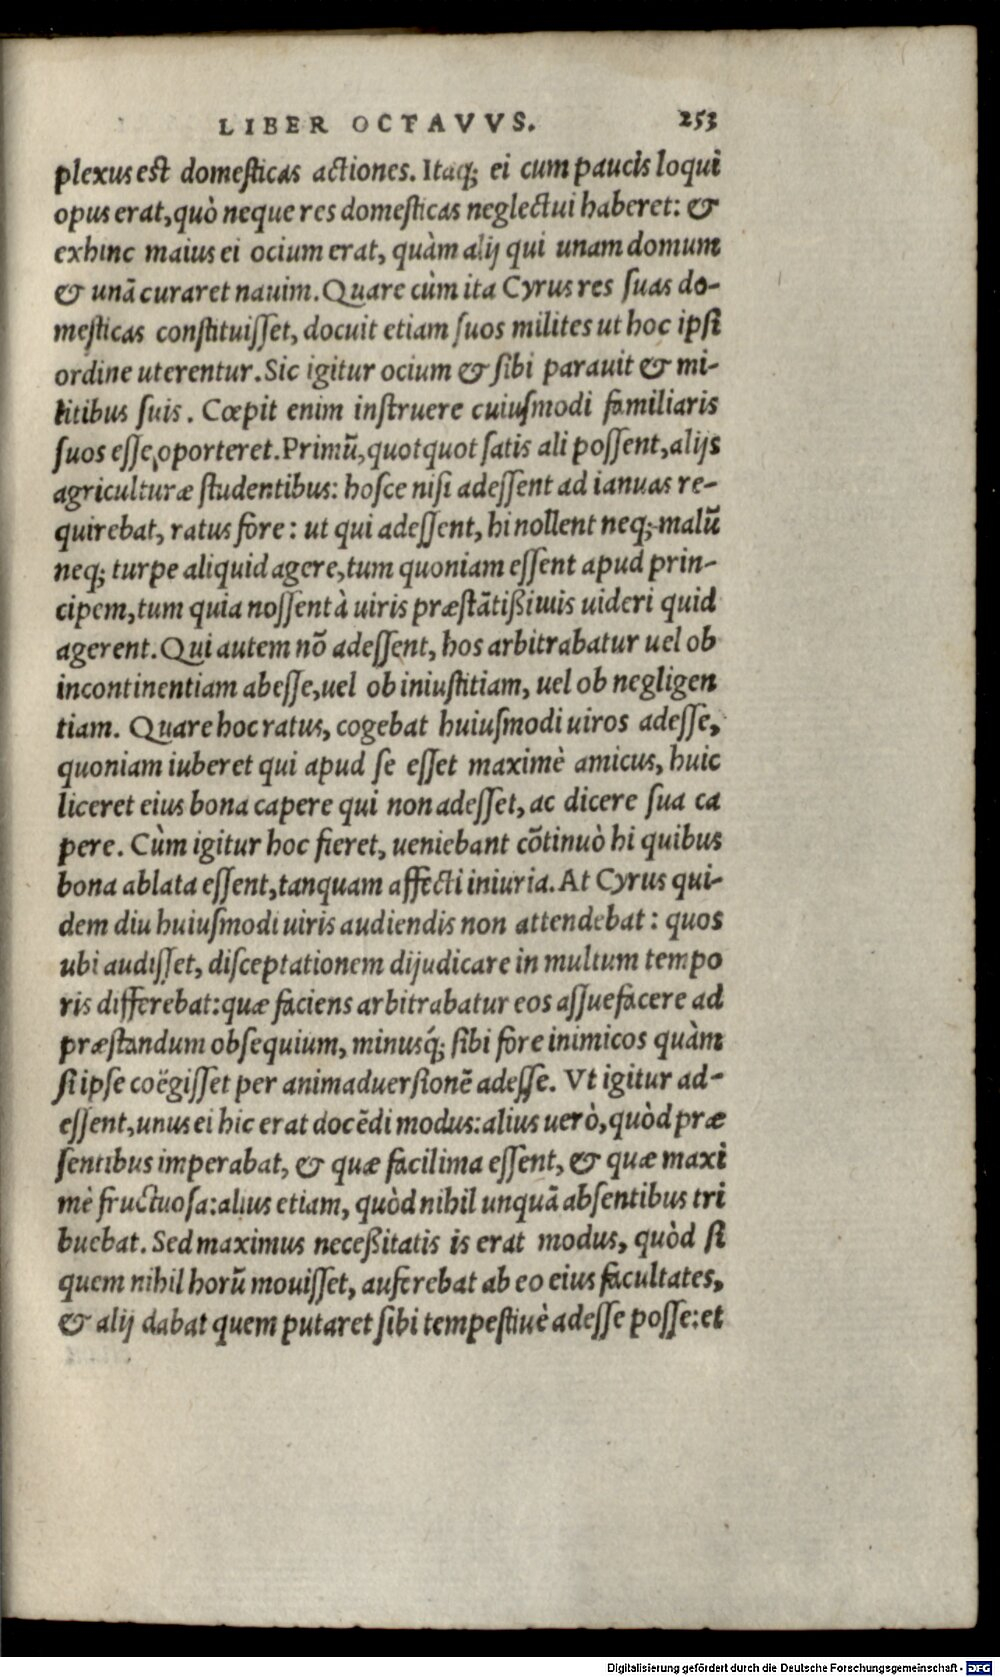 LIBER OCTAVVS. 253
plexus est domesticas actiones. Itaq; ei cum paucis loqui
opus erat, quò neque res domesticas neglectui haberet: &
exhinc maius ei ocium erat, quàm alij qui unam domum
& unã curaret nauim. Quare cùm ita Cyrus res suas do-
mesticas constituisset, docuit etiam suos milites ut hoc ipsi
ordine uterentur. Sic igitur ocium & sibi parauit & mi-
litibus suis. Cœpit enim instruere cuiusmodi familiaris
suos esse oporteret. Primũ, quotquot satis ali possent, alijs
agriculturæ studentibus: hosce nisi adessent ad ianuas re-
quirebat, ratus fore: ut qui adessent, hi nollent neq; malũ
neq; turpe aliquid agere, tum quoniam essent apud prin-
cipem, tum quia nossent à uiris præstãtißimis uideri quid
agerent. Qui autem nõ adessent, hos arbitrabatur uel ob
incontinentiam abesse, uel ob iniustitiam, uel ob negligen
tiam. Quare hoc ratus, cogebat huiusmodi uiros adesse,
quoniam iuberet qui apud se esset maximè amicus, huic
liceret eius bona capere qui non adesset, ac dicere sua ca
pere. Cùm igitur hoc fieret, ueniebant cõtinuò hi quibus
bona ablata essent, tanquam affecti iniuria. At Cyrus qui-
dem diu huiusmodi uiris audiendis non attendebat: quos
ubi audisset, disceptationem dijudicare in multum tempo
ris differebat: quæ faciens arbitrabatur eos assuefacere ad
præstandum obsequium, minusq́; sibi fore inimicos quàm
si ipse coëgisset per animaduersionẽ adesse. Vt igitur ad-
essent, unus ei hic erat docẽdi modus: alius uerò, quòd præ
sentibus imperabat, & quæ facilima essent, & quæ maxi
mè fructuosa: alius etiam, quòd nihil unquã absentibus tri
buebat. Sed maximus neceßitatis is erat modus, quòd si
quem nihil horũ mouisset, auferebat ab eo eius facultates,
& alij dabat quem putaret sibi tempestiuè adesse posse: et
Digitalisierung gefördert durch die Deutsche Forschungsgemeinschaft - DFG